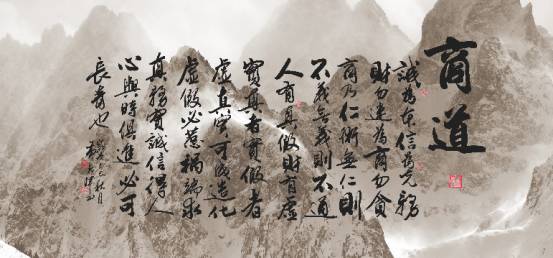 商道
誠為本信為先務
財勿迷為商勿貪
商乃仁術無仁則
不義無義則不通
人有真假財有虛
實真者實假者
虛真學可成造化
虛假必惹禍端求
真務實誠信得人
心與時俱進必可
長青也